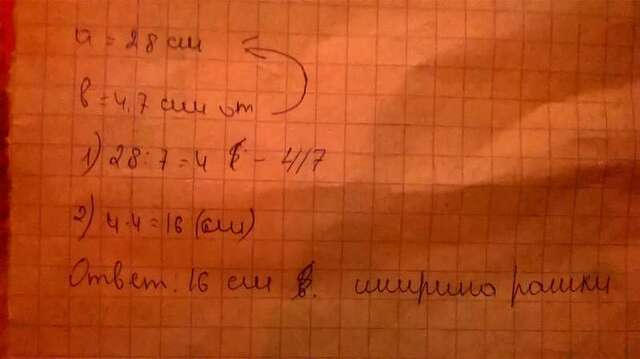 a = 28 см
в = 4,7 см от
1) 28:7=4 в - 4/7
2) 4·4=16 (см)
Ответ. 16 см ширина рамки